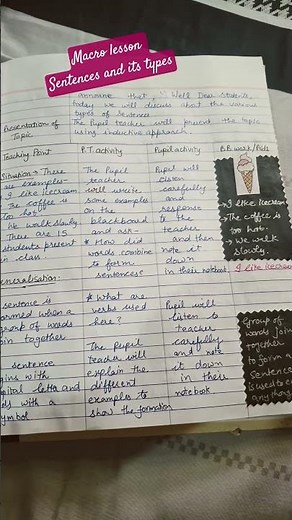 Macro lesson
Sentences and its types
announce that, "Well Dear students,
today we will discuss about the various
types of sentences
Presentation of
Topic
The Pupil teacher will present the topic
using inductive approach.
Teaching Point
P.T. activity
Pupil activity
B.B. work / Aids
Situation → There
are examples-
I like Icecream
The coffee is
Too hot.
We walk slowly
There are 15
students present
class
The Pupil
teacher
will write
some examples
on the
blackboard
and ask-
* How did
words combine
to form
sentences?
Pupil will
listen
carefully
and
response
to the
teacher
and then
note it
down
in their notebook
→ I like Icecream
→ The coffee is
too hot.
→ We walk
slowly.
I Like Icecream
Generalisation:
sentence is
formed when a
group of words
join together
sentence
begins with
capital letter and
ends with a
symbol
* What are
verbs used
here?
The pupil
teacher will
explain the
different
examples to
show the formation
Pupil will
listen to
teacher
carefully
and note
it down
in their
notebook
Group of
words join
together
to form a
Sentence
is used to